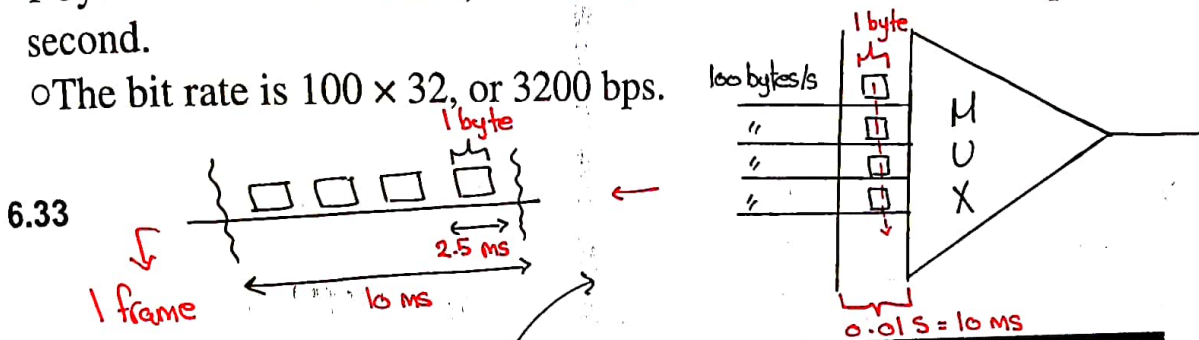 second.
○The bit rate is 100 × 32, or 3200 bps.
1 byte
6.33
2.5 ms
10 ms
1 frame
1 byte
100 bytes/s
〃
〃
〃
M
U
X
0.01 S = 10 ms